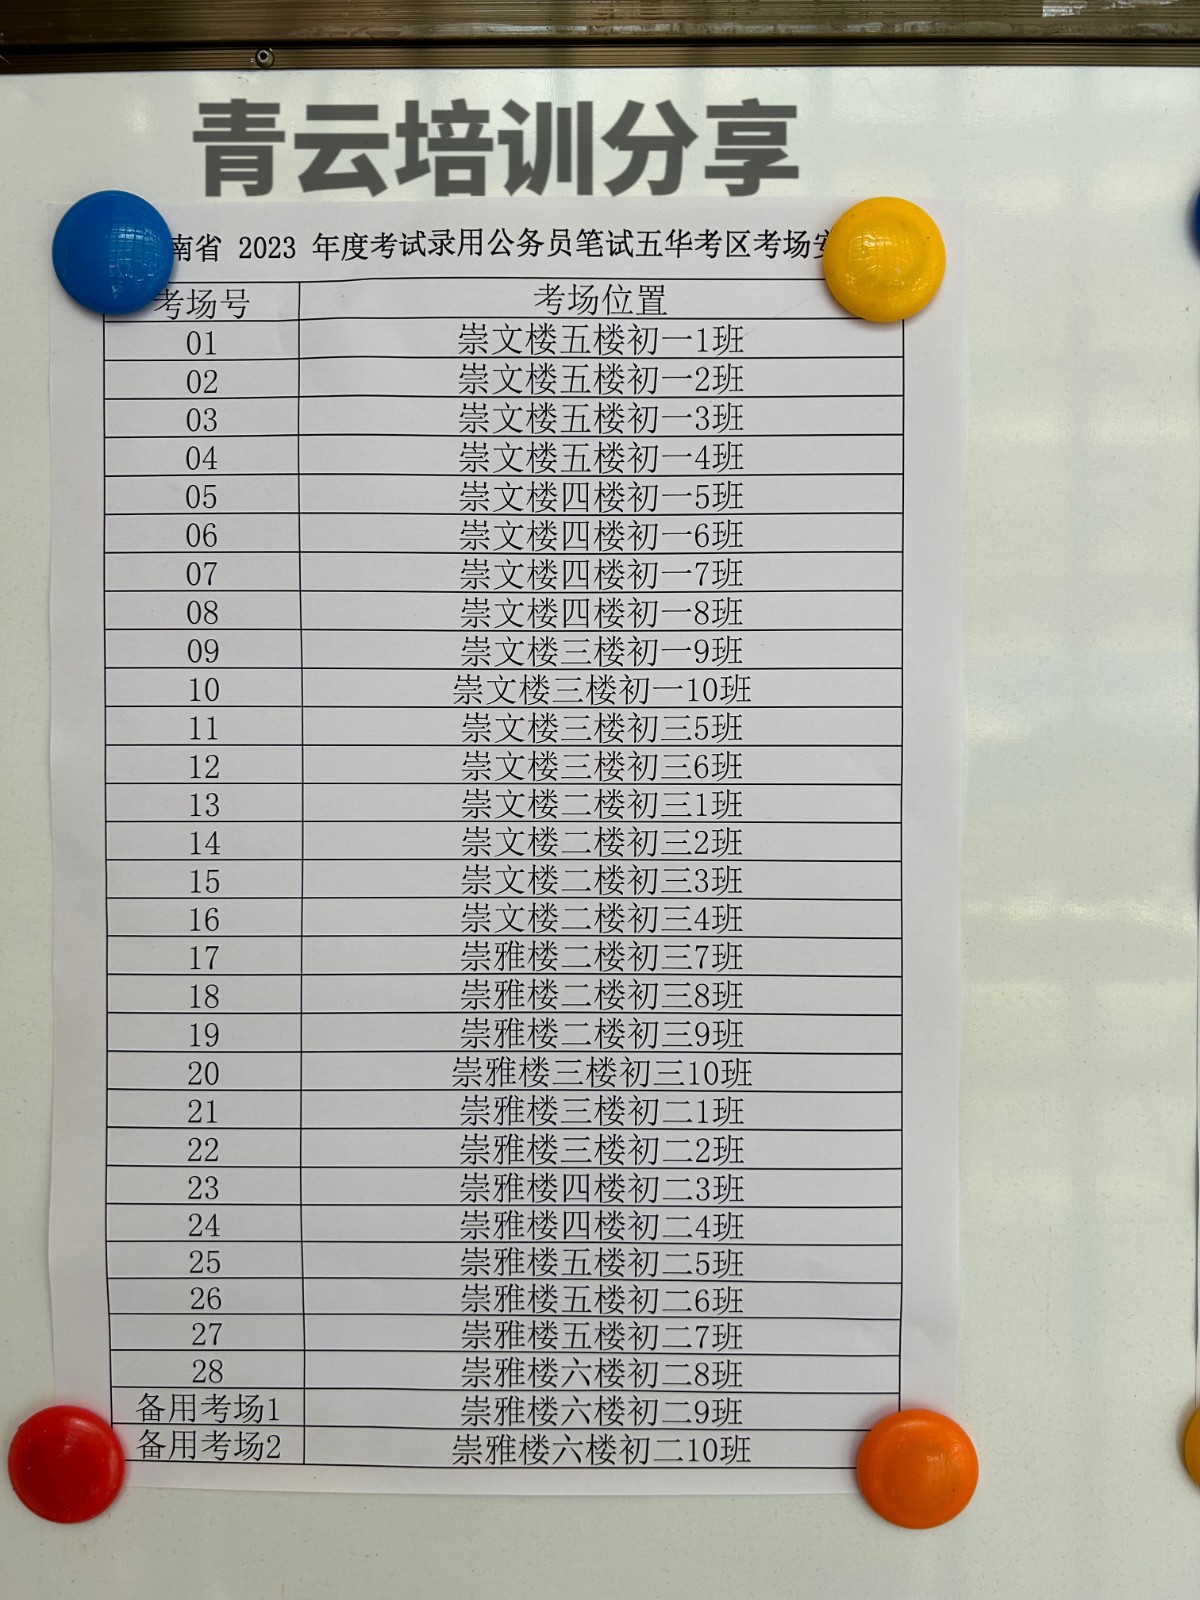 青云培训分享
南省 2023 年度考试录用公务员笔试五华考区考场
考场号 考场位置
01 崇文楼五楼初一1班
02 崇文楼五楼初一2班
03 崇文楼五楼初一3班
04 崇文楼五楼初一4班
05 崇文楼四楼初一5班
06 崇文楼四楼初一6班
07 崇文楼四楼初一7班
08 崇文楼四楼初一8班
09 崇文楼三楼初一9班
10 崇文楼三楼初一10班
11 崇文楼三楼初三5班
12 崇文楼三楼初三6班
13 崇文楼二楼初三1班
14 崇文楼二楼初三2班
15 崇文楼二楼初三3班
16 崇文楼二楼初三4班
17 崇雅楼二楼初三7班
18 崇雅楼二楼初三8班
19 崇雅楼二楼初三9班
20 崇雅楼三楼初三10班
21 崇雅楼三楼初二1班
22 崇雅楼三楼初二2班
23 崇雅楼四楼初二3班
24 崇雅楼四楼初二4班
25 崇雅楼五楼初二5班
26 崇雅楼五楼初二6班
27 崇雅楼五楼初二7班
28 崇雅楼六楼初二8班
备用考场1 崇雅楼六楼初二9班
备用考场2 崇雅楼六楼初二10班